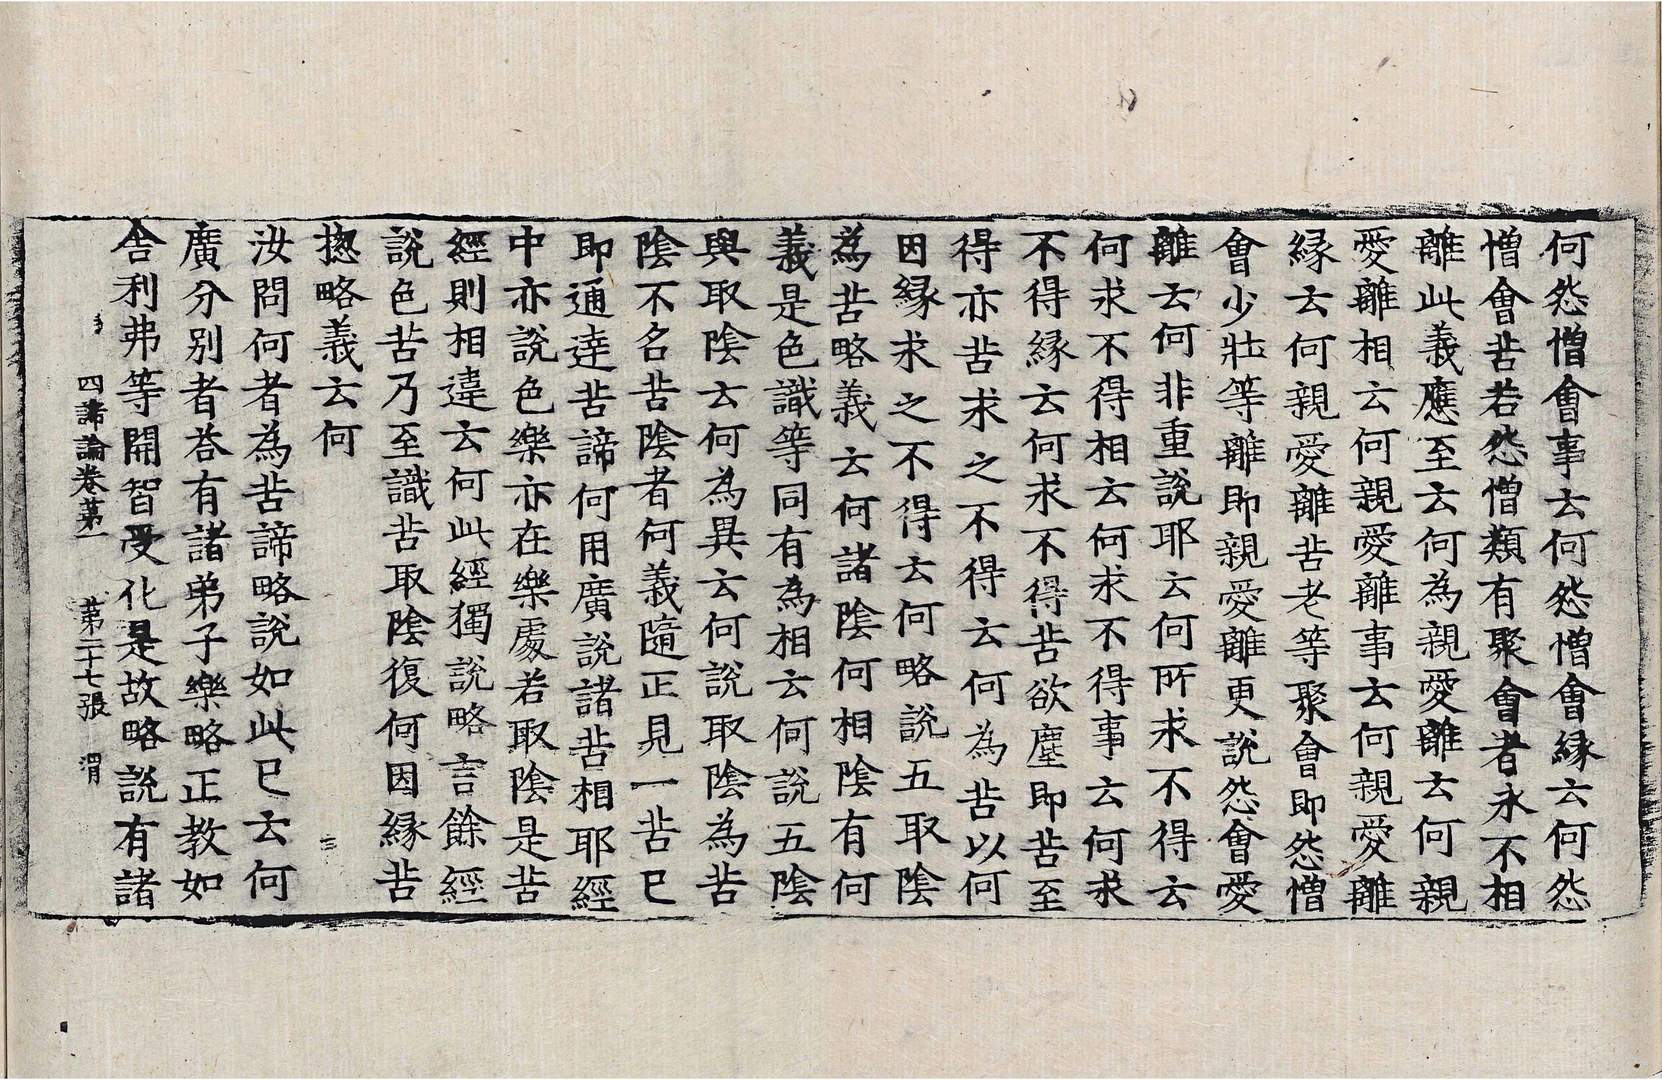 何怨憎會事云何怨憎會縁云何怨
憎會苦若怨憎類有聚會者永不相
離此義應至云何為親愛離云何親
愛離相云何親愛離事云何親愛離
縁云何親愛離苦老等聚會即怨憎
會少壯等離即親愛離更說怨會愛
離云何非重說耶云何所求不得云
何求不得相云何求不得事云何求
不得縁云何求不得苦欲塵即苦至
得亦苦求之不得云何為苦以何
因縁求之不得云何略說五取陰
為苦略義云何諸陰何相陰有何
義是色識等同有為相云何說五陰
與取陰云何為異云何說取陰為苦
陰不名苦陰者何義隨正見一苦已
即通達苦諦何用廣說諸苦相耶經
中亦說色樂亦在樂處若取陰是苦
經則相違云何此經獨說略言餘經
說色苦乃至識苦取陰復何因縁苦
揔略義云何
汝問何者為苦諦略說如此已云何
廣分別者荅有諸弟子樂略正教如
舎利弗等開智受化是故略說有諸
四諦論卷苐一 苐二十七張 渭